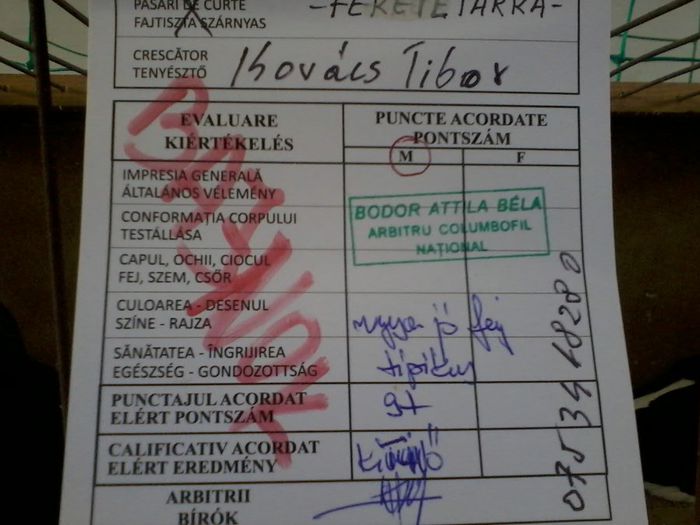 PASĂRI DE CURTE
FAJTISZTA SZÁRNYAS
-FEKETETARRA-
CRESCĂTOR
TENYÉSZTŐ
Kovács Tibor
EVALUARE
KIÉRTÉKELÉS
PUNCTE ACORDATE
PONTSZÁM
M F
IMPRESIA GENERALĂ
ÁLTALÁNOS VÉLEMÉNY
CONFORMAȚIA CORPULUI
TESTÁLLÁSA
BODOR ATTILA BÉLA
ARBITRU COLUMBOFIL
NAȚIONAL
CAPUL, OCHII, CIOCUL
FEJ, SZEM, CSŐR
CULOAREA - DESENUL
SZÍNE - RAJZA
nagyon jó fej
SĂNĂTATEA - ÎNGRIJIREA
EGÉSZSÉG - GONDOZOTTSÁG
tipikus
PUNCTAJUL ACORDAT
ELÉRT PONTSZÁM
97
CALIFICATIV ACORDAT
ELÉRT EREDMÉNY
kitűnő
ARBITRII
BÍRÓK
BAJNOK